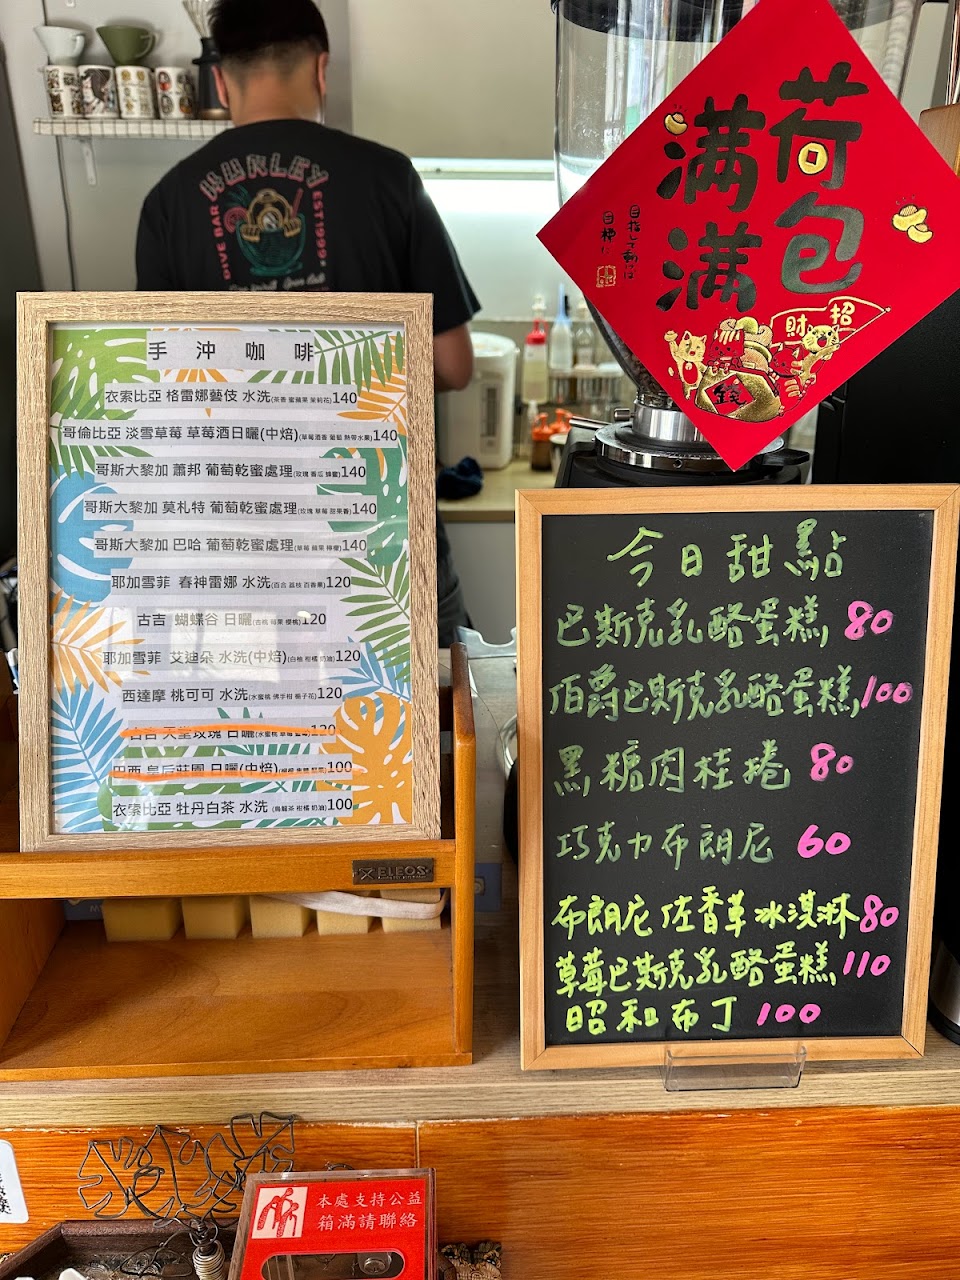 HURLEY
DIVE BAR
ESTD 1999
荷包
滿滿
招
財
錢
手沖咖啡
衣索比亞 格雷娜藝伎 水洗(茶香 蜜蘋果 茉莉花)140
哥倫比亞 淡雪草莓 草莓酒日曬(中焙)(草莓酒香 葡萄 熱帶水果)140
哥斯大黎加 蕭邦 葡萄乾蜜處理(玫瑰 香瓜 蜂蜜)140
哥斯大黎加 莫札特 葡萄乾蜜處理(玫瑰 草莓 甜果香)140
哥斯大黎加 巴哈 葡萄乾蜜處理(草莓 蘋果 檸檬)140
耶加雪菲 春神雷娜 水洗(百合 荔枝 百香果)120
古吉 蝴蝶谷 日曬(杏桃 莓果 櫻桃)120
耶加雪菲 艾迪朵 水洗(中焙)(白柚 柑橘 奶油)120
西達摩 桃可可 水洗(水蜜桃 佛手柑 梔子花)120
古吉 天堂玫瑰 日曬 120
巴西 皇后莊園 日曬(中焙) 100
衣索比亞 牡丹白茶 水洗 (烏龍茶 柑橘 奶油)100
ELEOS
今日甜點
巴斯克乳酪蛋糕, 80
伯爵巴斯克乳酪蛋糕, 100
黑糖肉桂捲 80
巧克力布朗尼 60
布朗尼佐香草冰淇淋 80
草莓巴斯克乳酪蛋糕 110
昭和布丁 100
本處支持公益
箱滿請聯絡